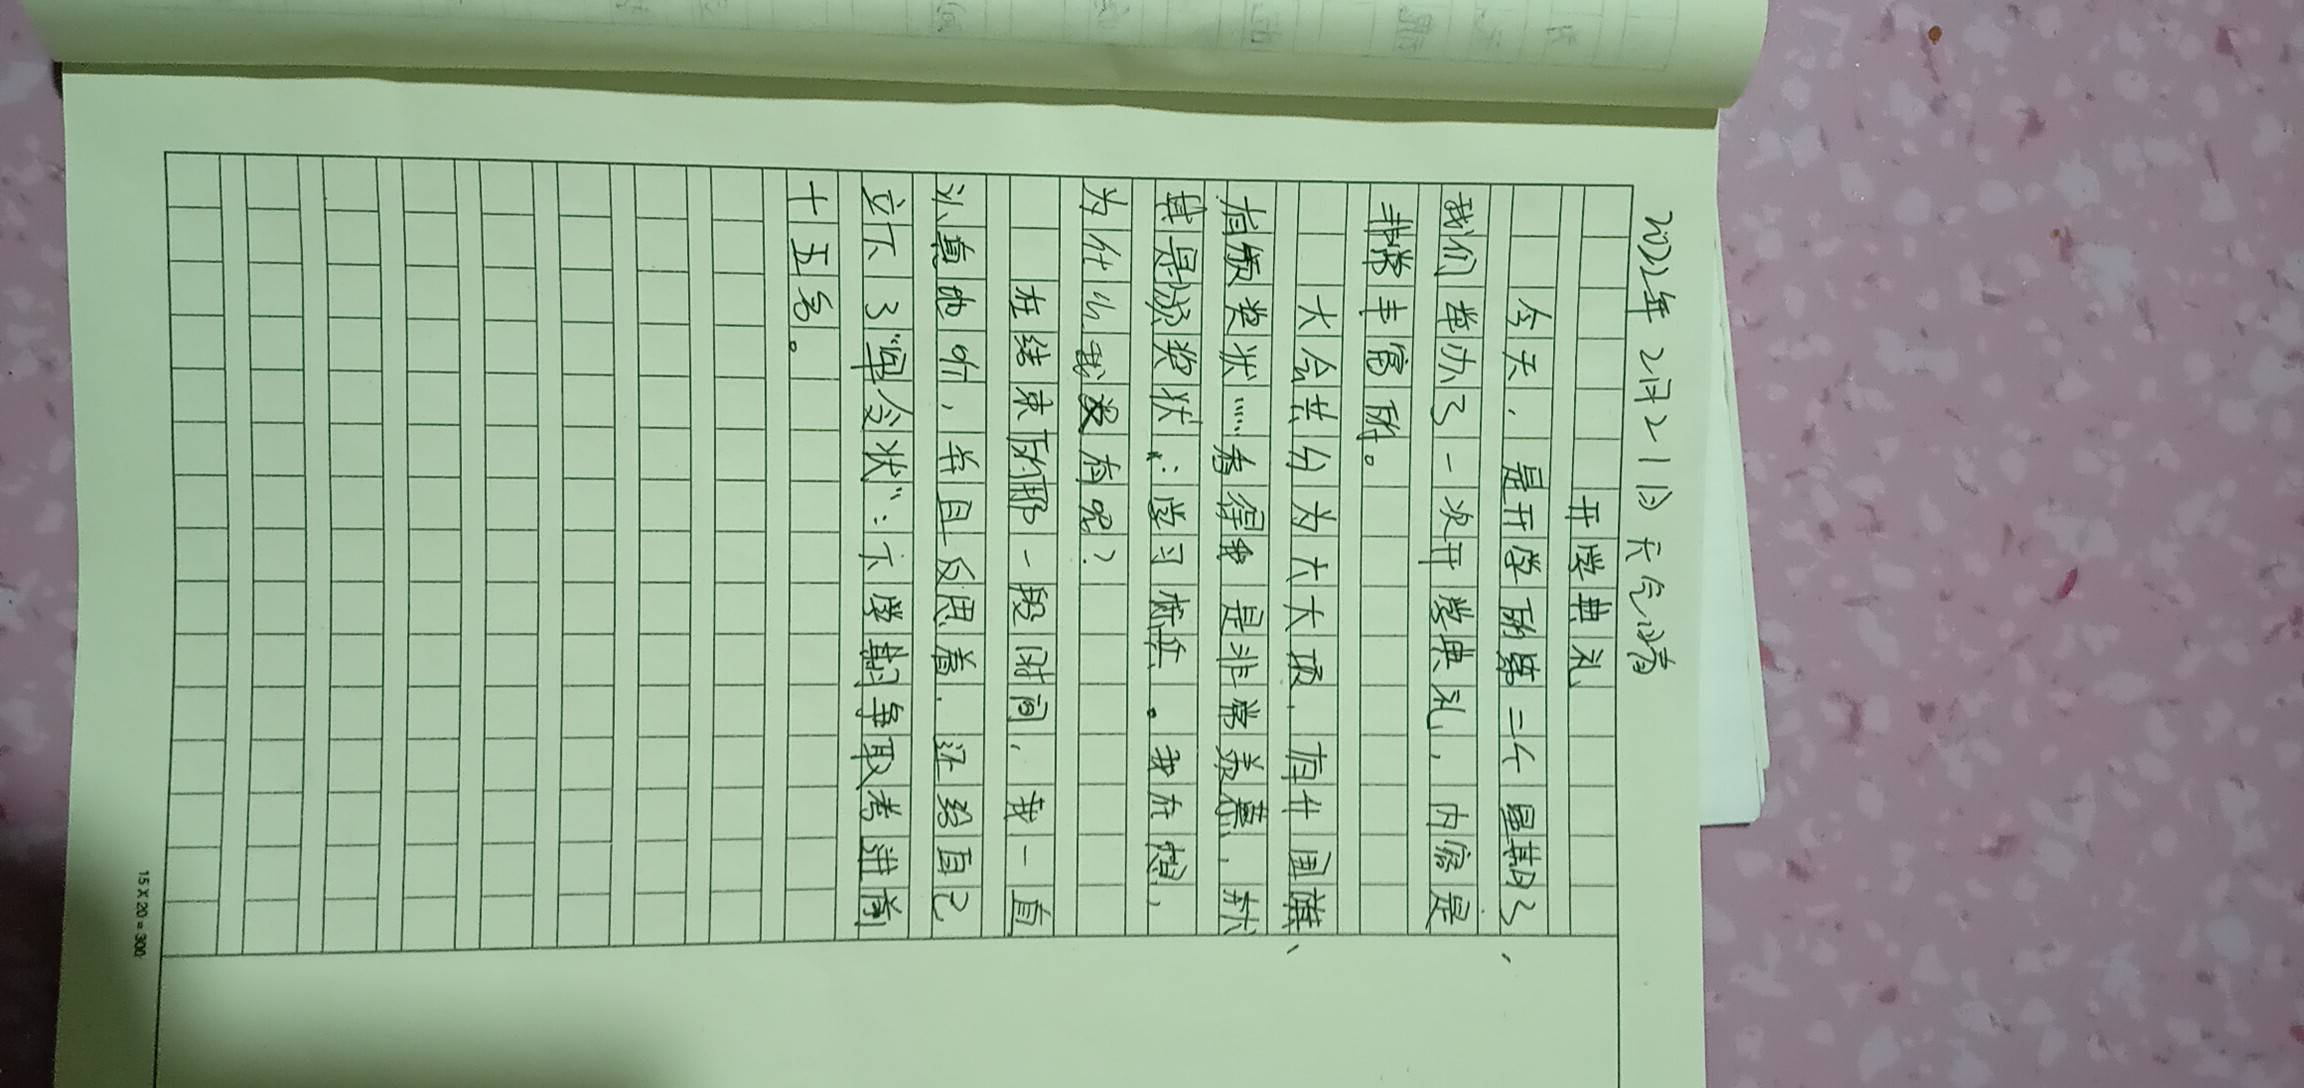 2022年2月21日 天气:晴
开学典礼
今天,是开学的第二个星期了,
我们举办了一次开学典礼,内容是
非常丰富的。
大会共分为六大项,有升国旗、
有颁奖状……看得我是非常羡慕,尤
其是颁奖状:学习标兵。我在想,
为什么我没有呢?
在结束的那一段时间,我一直
认真地听,并且反思着,还给自己
立下了“军令状”:下学期争取考进前
十五名。
15×20=300